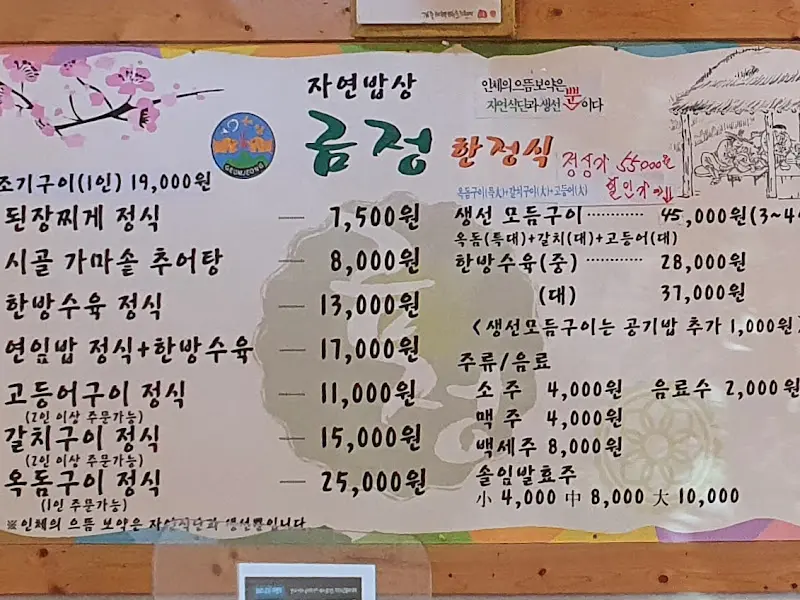 자연밥상
금정 한정식
인체의 으뜸 보약은
자연식단과 생선뿐이다
GEUMJEONG
정상가 55000원
할인가
옥돔구이(특大)+갈치구이(大)+고등어(大)
조기구이(1인) 19,000원
된장찌게 정식 — 7,500원
시골 가마솥 추어탕 — 8,000원
한방수육 정식 — 13,000원
연잎밥 정식+한방수육 — 17,000원
고등어구이 정식 — 11,000원
(2인 이상 주문가능)
갈치구이 정식 — 15,000원
(2인 이상 주문가능)
옥돔구이 정식 — 25,000원
(1인 주문가능)
※인체의 으뜸 보약은 자연식단과 생선뿐입니다.
생선 모듬구이 ············ 45,000원(3~4
옥돔(특대)+갈치(대)+고등어(대)
한방수육(중) ············ 28,000원
(대) 37,000원
<생선모듬구이는 공기밥 추가 1,000원>
주류/음료
소 주 4,000원 음료수 2,000원
맥 주 4,000원
백세주 8,000원
솔잎발효주
小 4,000 中 8,000 大 10,000